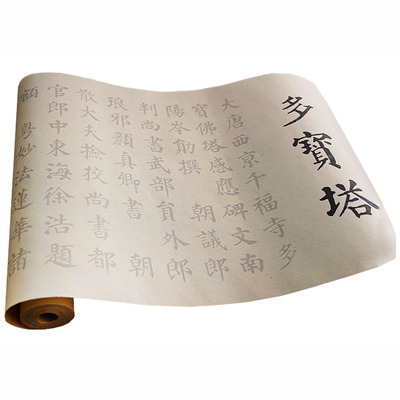 多寶塔
大唐西京千福寺多
寶佛塔感應碑文南
陽岑勛撰 朝議郎
判尚書武部員外郎
琅邪顏真卿書 朝
散大夫撿挍尚書都
官郎中東海徐浩題
額 粵妙法蓮華諸